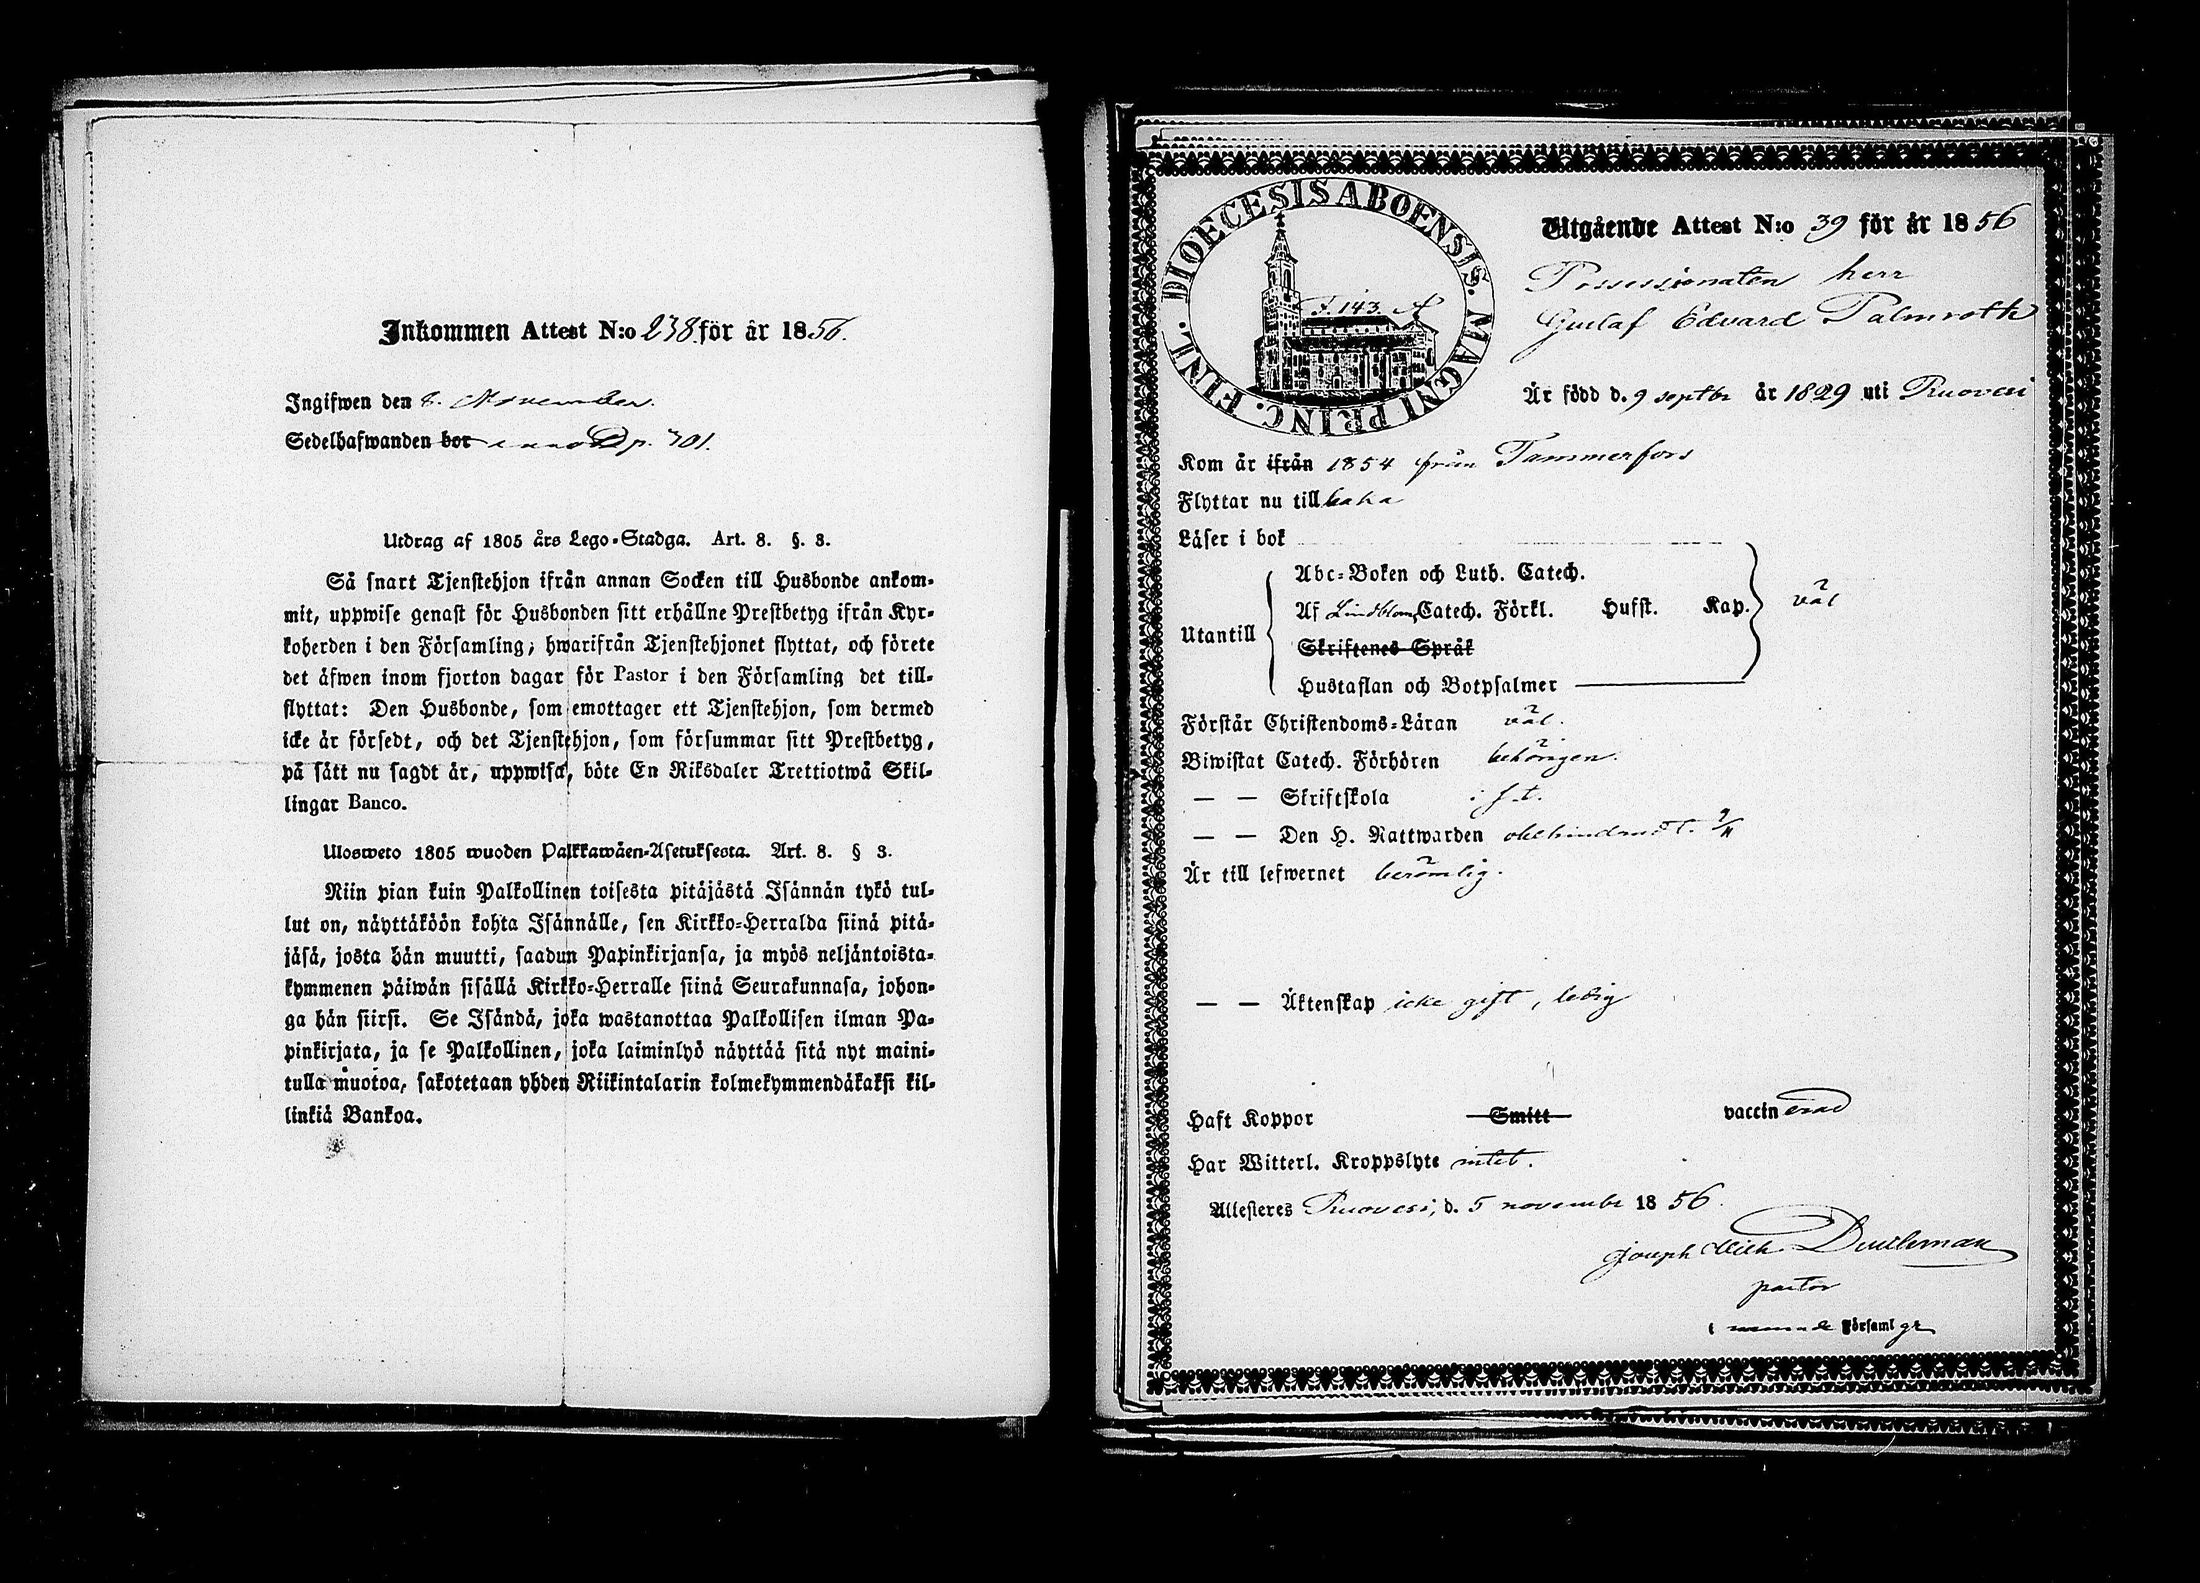 Inkommen Attest N:o 238 för år 1856.
Ingifwen den 8. November.
Sedelhafwanden bor p. 701.
Utdrag af 1805 års Lego-Stadga. Art. 8. §. 8.
Så snart Tjenstehjon ifrån annan Socken till Husbonde ankom-
mit, uppwise genast för Husbonden sitt erhållne Prestbetyg ifrån Kyr-
koherden i den Församling; hwarifrån Tjenstehjonet flyttat, och förete
det äfwen inom fjorton dagar för Pastor i den Församling det till-
flyttat: Den Husbonde, som emottager ett Tjenstehjon, som dermed
icke är försedt, och det Tjenstehjon, som försummar sitt Prestbetyg,
på sätt nu sagdt är, uppwisa, böte En Riksdaler Trettiotwå Skil-
lingar Banco.
Ulosweto 1805 wuoden Palkkawäen-Asetuksesta. Art. 8. § 3.
Niin pian kuin Palkollinen toisesta pitäjästä Isännän tykö tul-
lut on, näyttäköön kohta Isännälle, sen Kirkko-Herralda siinä pitä-
jäsä, josta hän muutti, saadun Papinkirjansa, ja myös neljäntoista-
kymmenen päiwän sisällä Kirkko-Herralle siinä Seurakunnasa, johon-
ga hän siirsi. Se Isändä, joka wastanottaa Palkollisen ilman Pa-
pinkirjata, ja se Palkollinen, joka laiminlyö näyttää sitä nyt maini-
tulla muotoa, sakotetaan yhden Riikintalarin kolmekymmendäkaksi kil-
linkiä Bankoa.
DIOECESIS ABOENSIS. MAGNI PRINC. FINL.
F. 143. A
Utgående Attest N:o 39 för år 1856
Possessionaten herr
Gustaf Edvard Palmroth
Är född d. 9 septbr år 1829 uti Ruovesi
Kom år ifrån 1854 från Tammerfors
Flyttar nu tillbaka
Läser i bok
Utantill
Abc-Boken och Luth. Catech.
Af Lindblom Catech. Förkl. Hufst. Kap. väl
Skriftenes Språk
Hustaflan och Botpsalmer
Förstår Christendoms-Läran väl.
Biwistat Catech. Förhören behörigen.
— — Skriftskola i s. t.
— — Den H. Nattwarden obehindradt. 2/11
Är till lefwernet berömlig.
— — Äktenskap icke gift, ledig
Haft Koppor Smitt vaccinerad
Har Witterl. Kroppslyte intet.
Attesteres Ruovesi, d. 5 novembr 1856.
Joseph Wilh. Durchman
pastor
i nämnde Församl gr